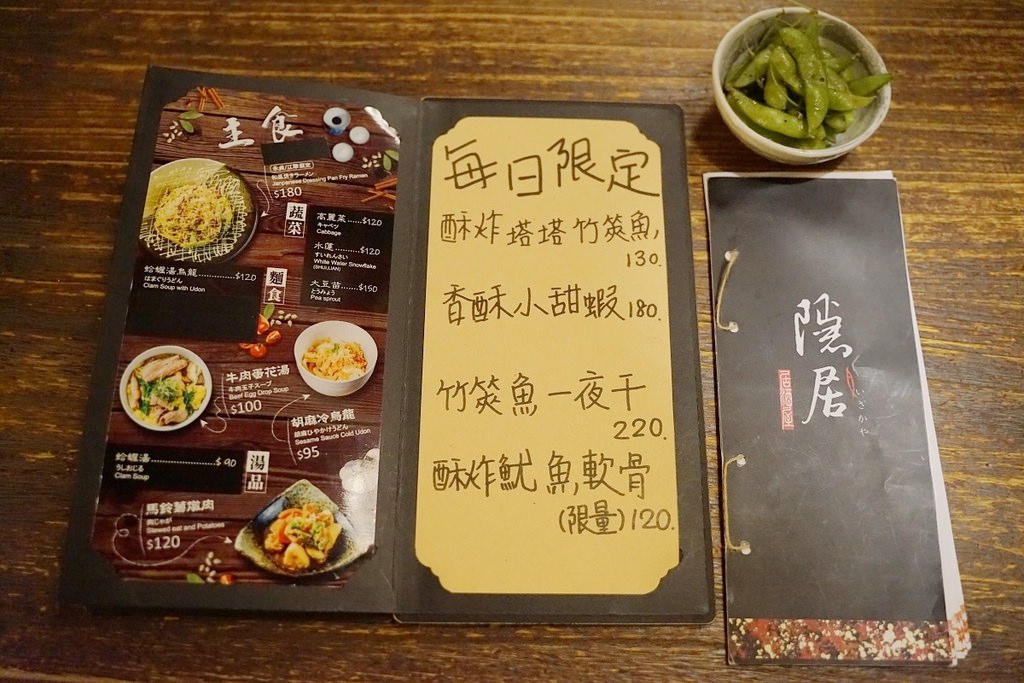 主食
和風焼きラーメン
Janpanese Dressing Pan Fry Ramen
$180
蔬菜
高麗菜......$120
キャベツ
Cabbage
水蓮............$120
すいれんさい
White Water Snowflake
(SHUI LIAN)
大豆苗......$150
とうみょう
Pea sprout
蛤蠣湯烏龍......................$120
はまぐりうどん
Clam Soup with Udon
麵食
牛肉蛋花湯
牛肉玉子スープ
Beef Egg Drop Soup
$100
胡麻冷烏龍
胡麻ひやかけうどん
Sesame Sauce Cold Udon
$95
蛤蠣湯......................$90
うしおじる
Clam Soup
湯品
馬鈴薯燉肉
肉じゃが
Stewed eat and Potatoes
$120
每日限定
酥炸塔塔竹筴魚
130.
香酥小甜蝦180.
竹筴魚一夜干
220.
酥炸魷魚軟骨
(限量)120.
隱居
いざかや
居酒屋